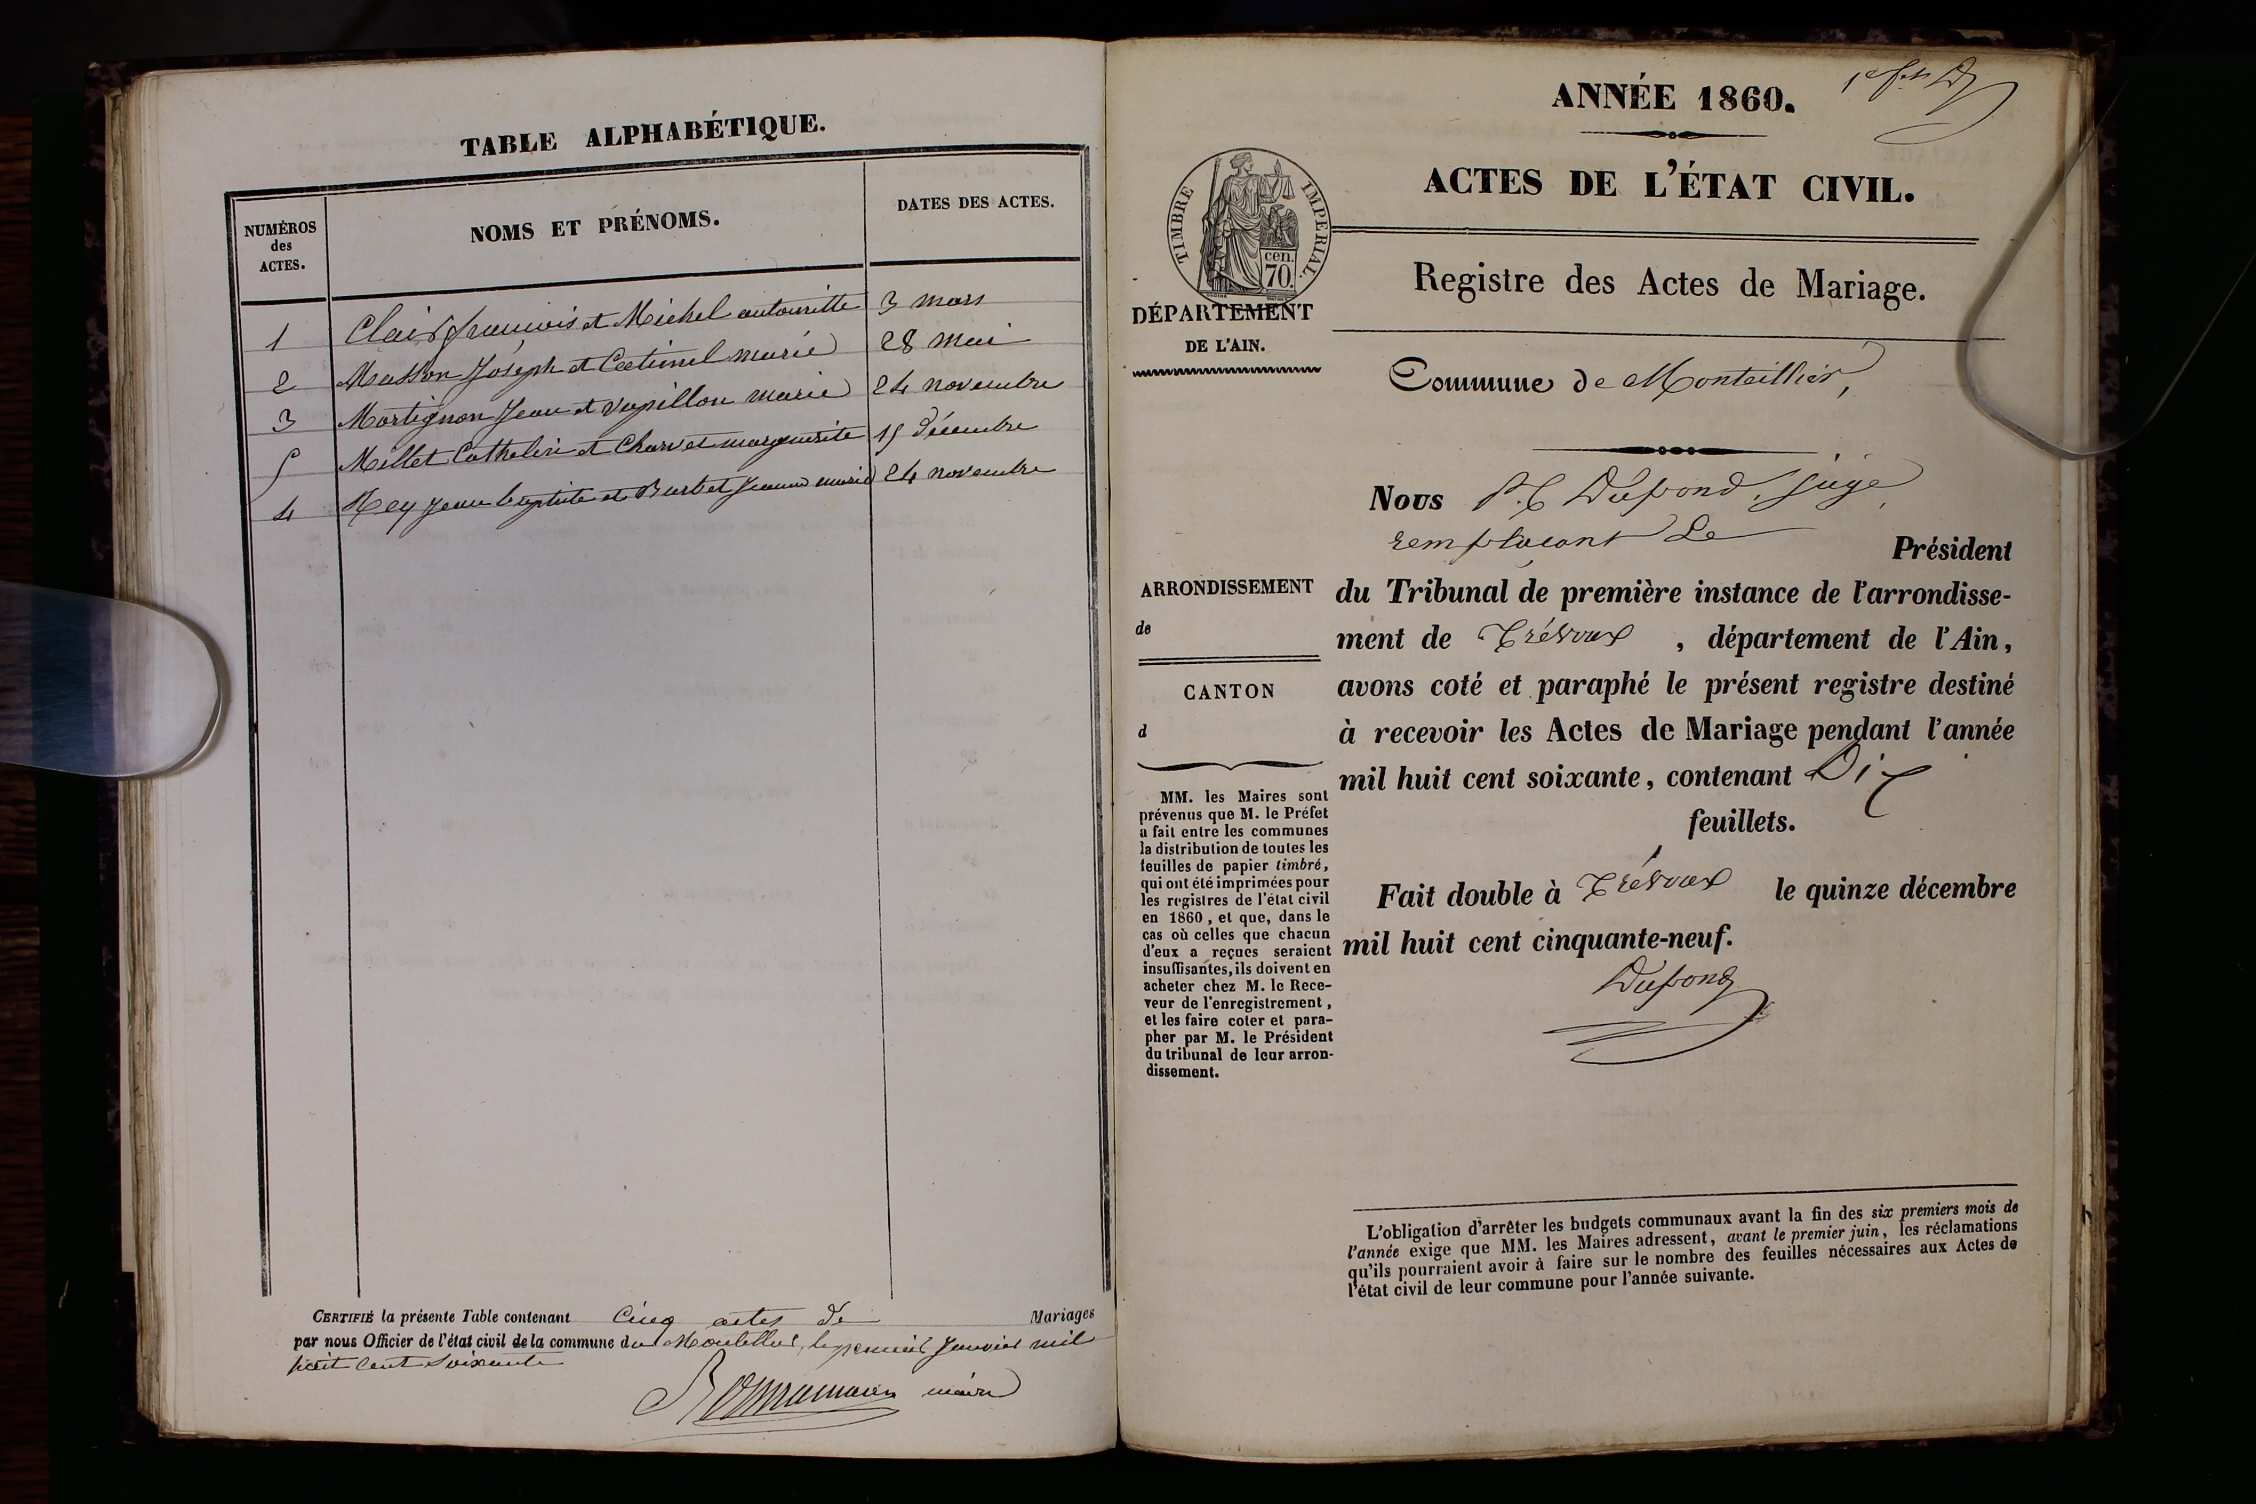 TABLE ALPHABÉTIQUE.
NUMÉROS
des
ACTES.
NOMS ET PRÉNOMS.
DATES DES ACTES.
1 Clair françois et Michel antoinette 3 mars
2 Masson Joseph et Catinel marie 28 mai
3 Mortignon Jean et Vapillon marie 24 novembre
5 Millet Cathelin et Charvet marguerite 15 décembre
4 Rey Jean baptiste et Burtet Jeanne marie 24 novembre
CERTIFIÉ la présente Table contenant Cinq actes de Mariages
par nous Officier de l'état civil de la commune du Montellier, le premier Janvier mil
huit cent soixante
maire
ANNÉE 1860.
ACTES DE L'ÉTAT CIVIL.
TIMBRE IMPERIAL.
cen.
70.
Registre des Actes de Mariage.
DÉPARTEMENT
DE L'AIN.
Commune de Monteillier,
Nous Dupond, juge,
remplaçant Le Président
ARRONDISSEMENT
de
du Tribunal de première instance de l'arrondisse-
ment de Trévoux, département de l'Ain,
CANTON
d
avons coté et paraphé le présent registre destiné
à recevoir les Actes de Mariage pendant l'année
mil huit cent soixante, contenant Dix
feuillets.
Fait double à Trévoux le quinze décembre
mil huit cent cinquante-neuf.
Dupond
MM. les Maires sont
prévenus que M. le Préfet
a fait entre les communes
la distribution de toutes les
feuilles de papier timbré,
qui ont été imprimées pour
les registres de l'état civil
en 1860, et que, dans le
cas où celles que chacun
d'eux a reçues seraient
insuffisantes, ils doivent en
acheter chez M. le Rece-
veur de l'enregistrement,
et les faire coter et para-
pher par M. le Président
du tribunal de leur arron-
dissement.
L'obligation d'arrêter les budgets communaux avant la fin des six premiers mois de
l'année exige que MM. les Maires adressent, avant le premier juin, les réclamations
qu'ils pourraient avoir à faire sur le nombre des feuilles nécessaires aux Actes de
l'état civil de leur commune pour l'année suivante.